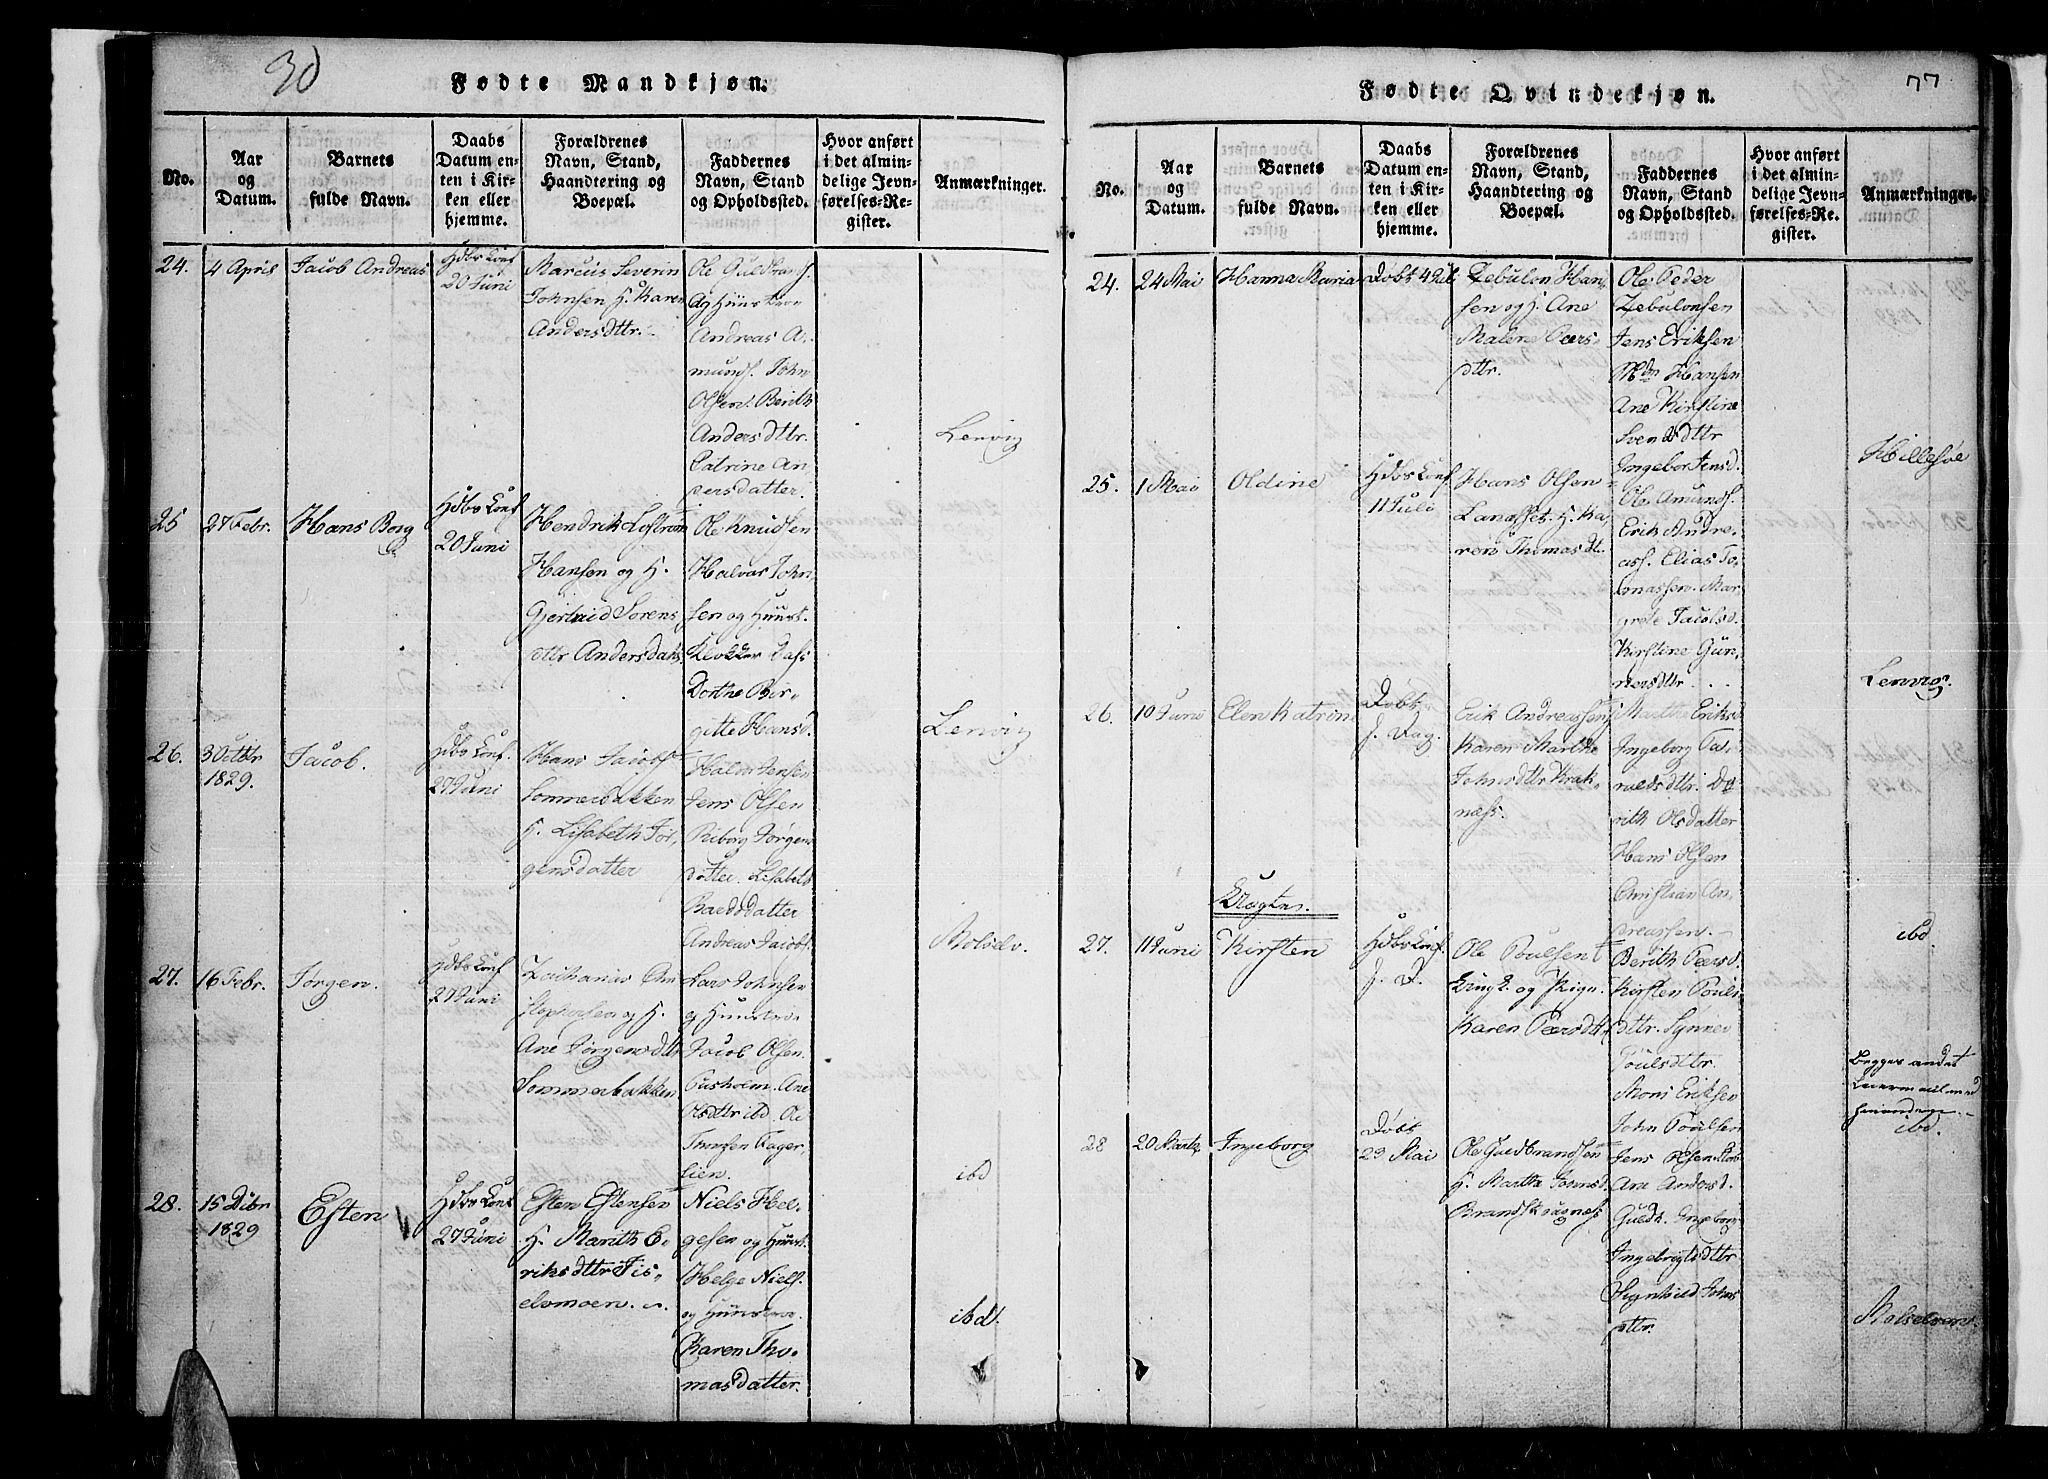 30
Fødte Mandkjøn.
No.
Aar
og
Datum.
Barnets
fulde Navn.
Daabs
Datum en-
ten i Kir-
ken eller
hjemme.
Forældrenes
Navn, Stand,
Haandtering og
Boepæl.
Faddernes
Navn, Stand
og Opholdssted.
Hvor anført
i det almin-
delige Jevn-
førelses-Re-
gister.
Anmærkninger.
24.
4 April
Jacob Andreas
Hdbs Conf
20 Juni
Marcus Severin
Johnsen H. Karen
Andersdttr.
Ole Guldbrands.
og Huustroe
Andreas A-
munds. John
Olsen. Berith
Andersdttr.
Catrine An
dersdatter.
Lenvig
25
27 Febr.
Hans Borg
Hdbs Conf
20 Juni
Hendrik Lofstrom
Hansen og H.
Gjertruid Sorens
dttr Andersdahl
Ole Knudsen
Halvor John
sen og Huust.
Klokker Dass
Dorthe Bir-
gitte Hansd.
Lenvig
26.
3 Octbr
1829.
Jacob.
Hdbs Conf.
27 Juni
Hans Jacobs.
Sommerbakken
H. Lisabeth Jør
gensdatter
Halvor Jensen
Jens Olsen
Riborg Jørgens
datter. Lisabeth
Baedsdatter
Andreas Jacobs.
Molselv.
27.
16 Febr.
Jørgen.
Hdbs Conf
27 Juni
Zacharias Chri
stophersen og H.
Ane Jørgensdttr
Sommerbakken
Lars Johnsen
og Huustroe
Jacob Olsen
Ane
Olsdttr ibd. Ole
Fager
lien.
ibd
28.
15 Dcbr
1829
Esten
Hdbs Conf
27 Juni
Esten Estensen
H. Marith E-
riksdttr Fis-
elvmoen.
Niels Hel-
gesen og Huust.
Helge Niels.
og Huustroe.
Karen Tho-
masdatter.
ibd.
77
Fødte Qvindekjøn.
No.
Aar
og
Datum.
Barnets
fulde Navn.
Daabs
Datum en-
ten i Kir-
ken eller
hjemme.
Forældrenes
Navn, Stand,
Haandtering og
Boepæl.
Faddernes
Navn, Stand
og Opholdssted.
Hvor anført
i det almin-
delige Jevn-
førelses-Re-
gister.
Anmærkninger.
24.
24 Mai
Hanna Maria
Døbt 4 Juli
Zebulon Han-
sen og H. Ane
Malene Pærs
dttr.
Ole Peder
Zebulonsen
Jens Eriksen
Mdm Hansen
Ane Kirstine
Svendsdttr
Ingebor Jensd.
Hillesøe
25.
1 Mai
Oldine
Hdbs Conf.
11 Juli
Hans Olsen
Lanasset. H. Ka-
ren Thomasdt.
Ole Amunds.
Erik Andre-
ass. Elias To-
nassen. Mar-
grete Jacobsd.
Kirstine Gun-
nersdttr...
Lenvig.
26.
10 Juni
Elen Katrine
Døbt
s. Dag.
Erik Andreassen
Karen Marthe
Johnsdttr Krak-
næss.
Martha Eriksd.
Ingeborg
Be-
rith Olsdatter
Hans Olsen
Christian An-
dreassen.
ibd
Uægte.
27.
11 Juni
Kirsten
Hdbs Conf.
s. D.
Ole Poulsen
Ungk. og Pige
Karen Pærsdttr
Berith Pærsd.
Kirsten Pouls-
dttr. Synnev
Poulsdttr
Mons Eriksen
John Poulsen
Begges andet
Leiermaal med
hinanden.
ibd.
28
20 Martz
Ingeborg
Døbt
29 Mai
Ole Guldbrandsen
H. Martha Johnsd.
Brandskognæs
Jens Olsen
Ane Andersd.
Guldh. Ingeborg
Ingebrigtsdttr
Segnhild Johns
dttr.
Molselven.